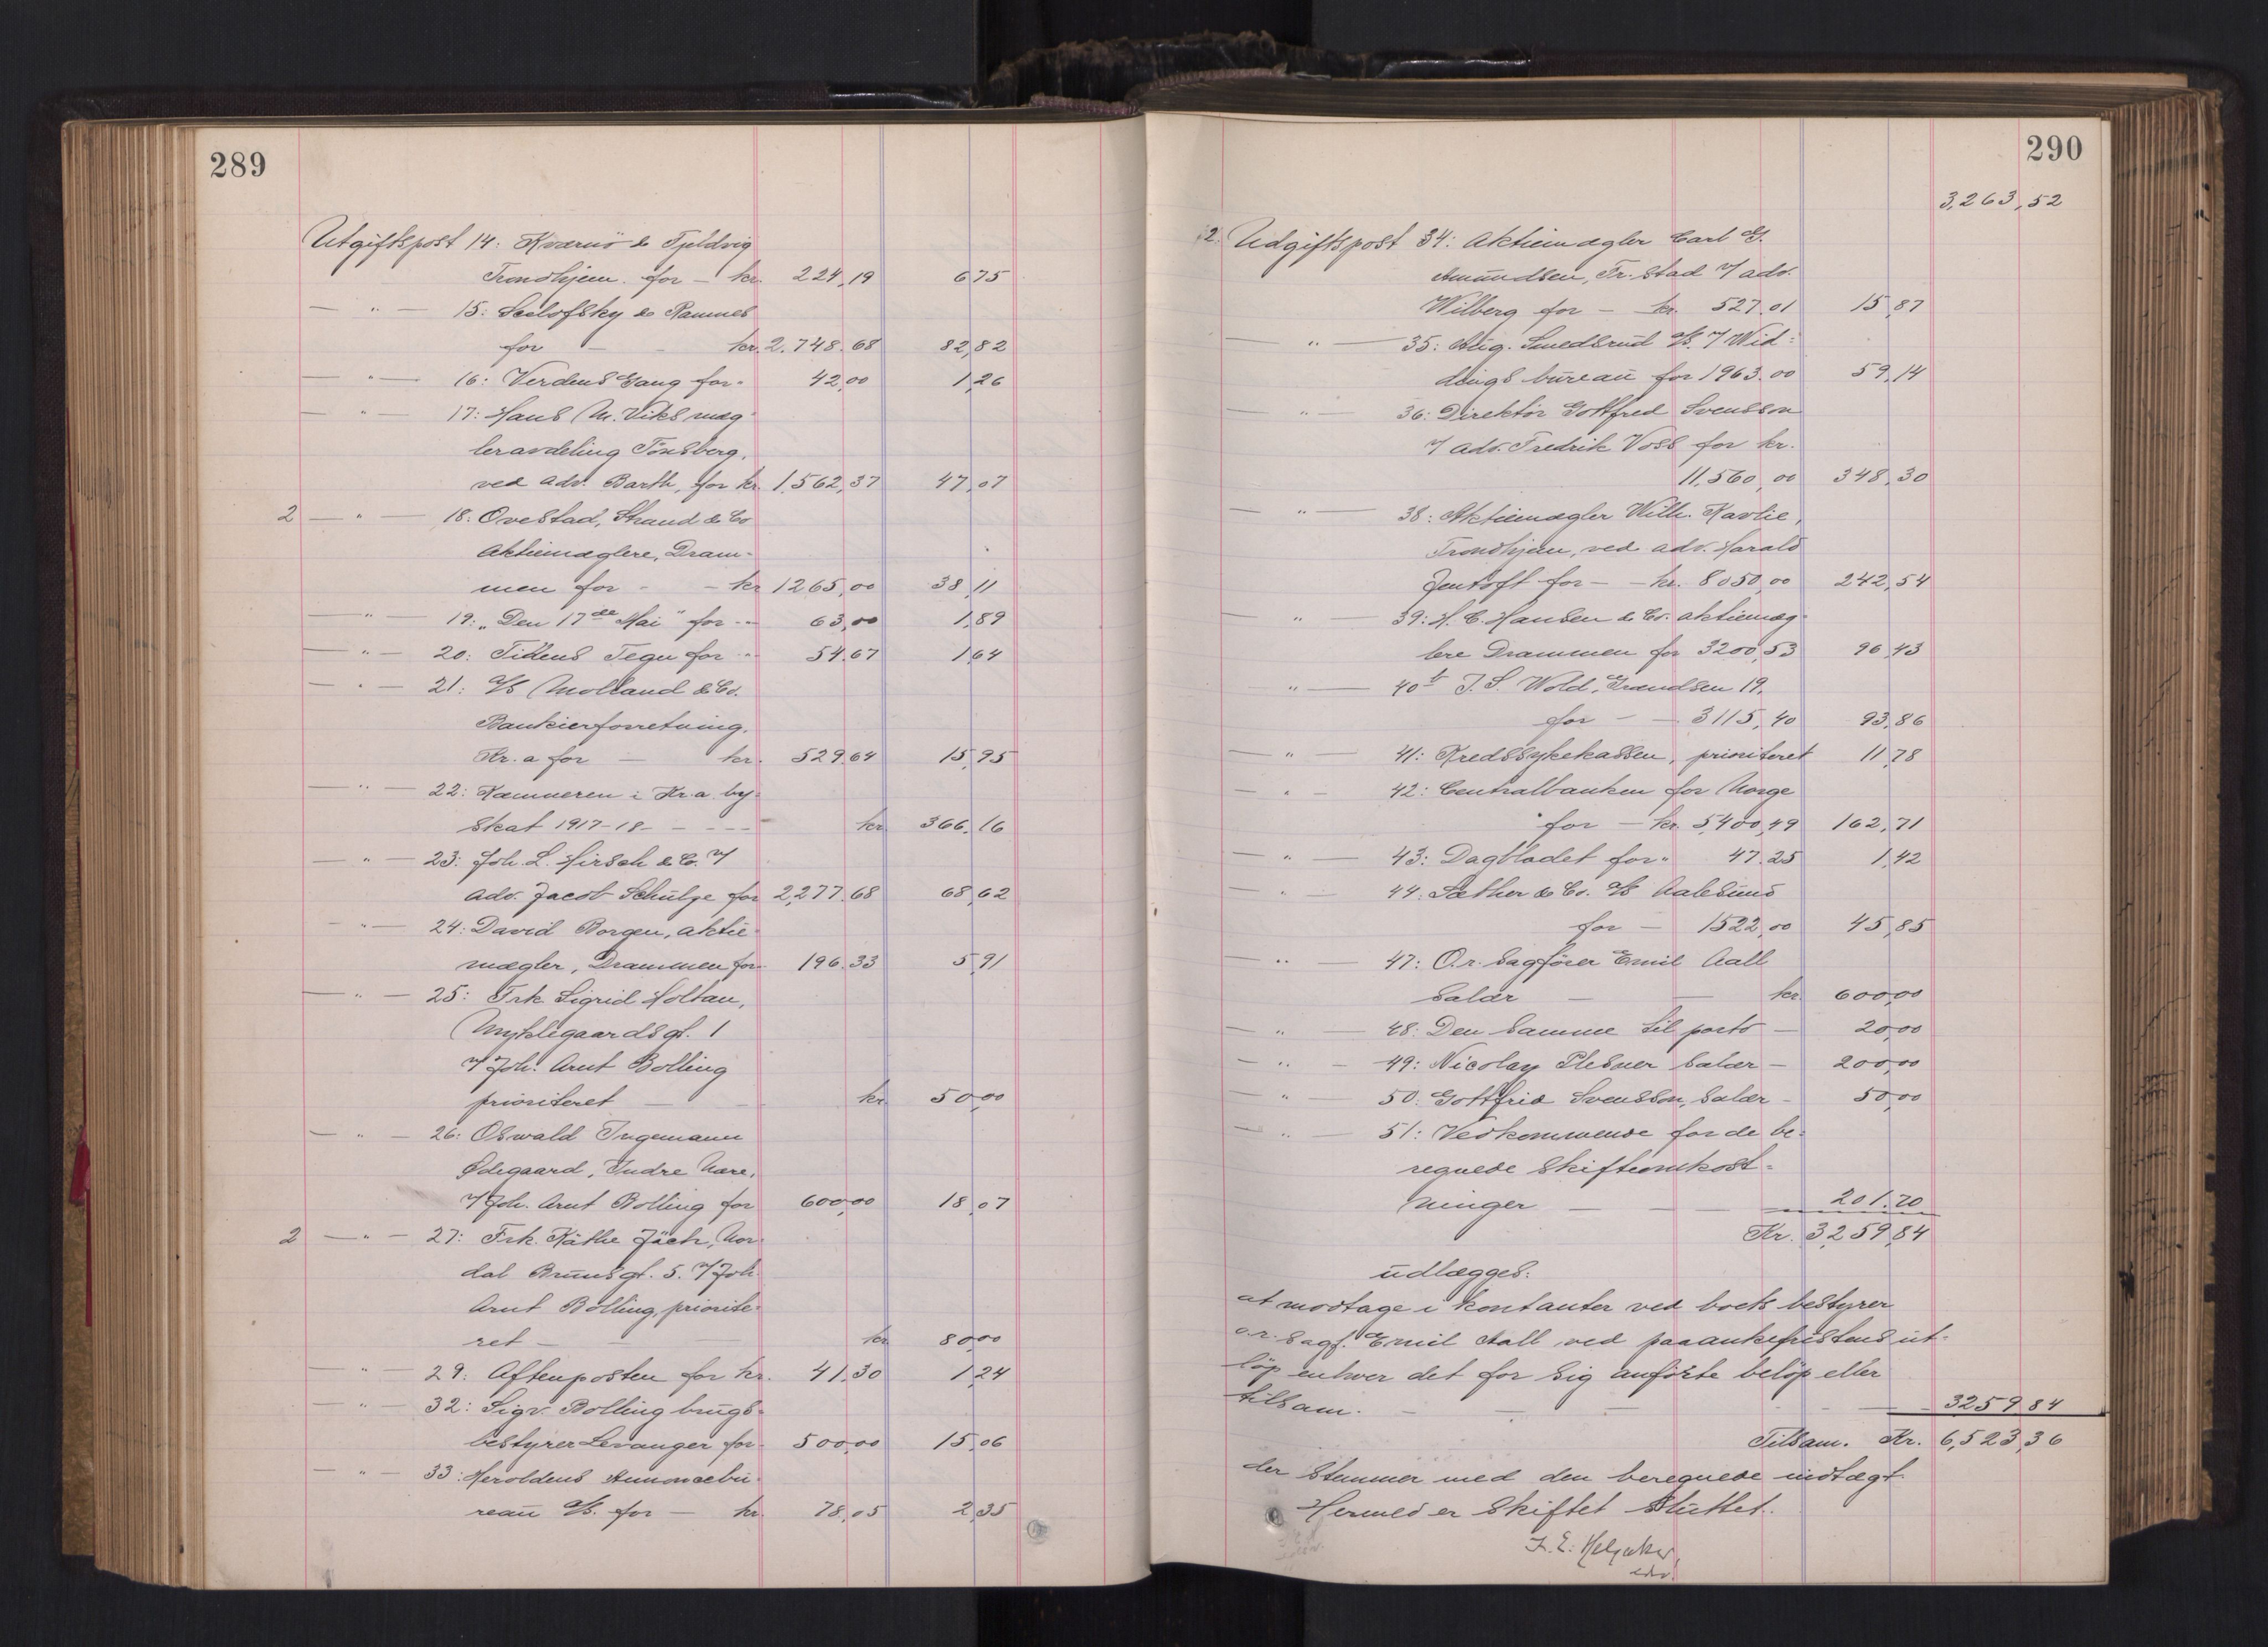 289
Utgiftspost 14: Kværnö & Tjeldvig
Trondhjem. for - kr. 224,19 6 75
— " — 15: Seelofsky & Ramnes
for - - kr. 2.748.68 82,82
— " — 16: Verdens Gang for " 42,00 1,26
— " — 17: Hans M. Viks mæg-
leravdeling Tönsberg,
ved adv. Barth, for kr. 1,562,37 47,07
2 — " — 18: Ovestad, Strand & Co
Aktiemæglere, Dram-
men for - - kr 1265,00 38,11
— " — 19: „Den 17de Mai" for -- 63,00 1,89
— " — 20: Tidens Tegn for -- 54.67 1,64
— " — 21: A/S Molland & Co.
Bankierforretning,
Kr.a for — kr. 529.64 15,95
— " — 22: Kæmneren i Kr.a by-
skat 1917-18 - - - - kr. 366,16
— " — 23: Joh. L. Hirsch & C. v/
adv. Jacob Schulze for 2,277.68 68,62
— " — 24: David Borgen, aktie-
mægler, Drammen for 196.33 5,91
— " — 25: Frk Sigrid Holtan,
Myklegaardsgt. 1
v/ Joh. Arnt Bolling
prioriteret — - kr. 50,00
— " — 26: Oswald Ingemann
Ödegaard, Indre Nare,
v/ Joh. Arnt Bolling for 600,00 18,07
2 — " — 27: Frk. Käthe Jäch, Nor-
dal Brunsgt. 5. v/ Joh.
Arnt Bolling, priorite-
ret — - — kr. 80,00
— " — 29: Aftenposten for kr. 41.30 1,24
— " — 32: Sigv. Bolling brugs-
bestyrer Levanger for 500,00 15,06
— " — 33: Heroldens Annoncebu-
reau A/S. for — kr. 78,05 2,35
290
3,263,52
2. Udgiftspost 34: Aktiemægler Carl G.
Amundsen, Fr.stad v/ adv.
Wilberg for - kr. 527.01 15,87
— " — 35: Aug. Smedsrud A/S. v/ Wid-
dings bureau for 1963.00 59,14
— " — 36: Direktör Gottfred Svensson
v/ adv. Fredrik Voss for kr.
11.560,00 348,30
— " — 38: Aktiemægler Wilh. Kavlie,
Trondhjem, ved adv. Harald
Jentoft for - - kr. 8050,00 242,54
— " — 39: H. C. Hansen & Co. aktiemæg-
lere Drammen for 3200,53 96,43
— " — 40 b J. S. Wold, Grændsen 19,
for - - 3115,40 93,86
— " — 41: Kredssykekassen, prioriteret 11,78
— " — 42: Centralbanken for Norge
for - kr. 5,400,49 162,71
— " — 43: Dagbladet for " 47.25 1,42
— " — 44: Sæther & Co. A/S Aalesund
for — 1522,00 45,85
— " — 47: O.r. sagförer Emil Aall
Salær — — kr. 600,00
— " — 48: Den samme til porto — 20,00
— " — 49: Nicolay Plesner Salær — 200,00
— " — 50: Gottfrid Svensson, Salær - 50,00
— " — 51: Vedkommende for de be-
regnede skifteomkost-
ninger — — — 201.70
Kr. 3,259,84
udlægges:
at modtage i kontanter ved boets bestyrer
o.r. sagf. Emil Aall ved paaankefristens ut-
löp enhver det for sig anförte belöp eller
tilsam. — — — — 3259 84
Tilsam. Kr. 6,523,36
der stemmer med den beregnede indtægt.
Hermed er skiftet sluttet.